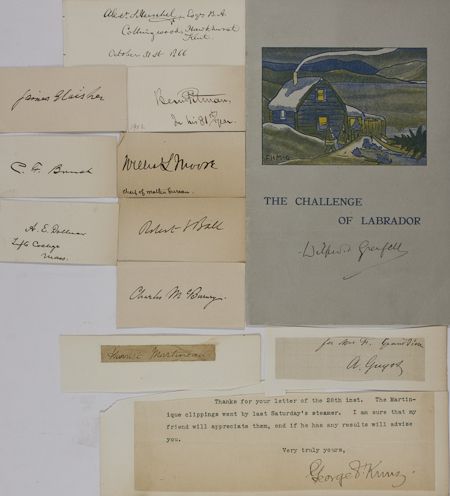 Alexr S. Herschel, Esqre B.A.
Collingwood, Hawkhurst
Kent.
October 31st 1866
James Glaisher
Benn Pitman.
In his 81st year.
Willis L Moore
Chief of Weather Bureau.
A. E. Dolbear
Tufts College
Mass.
Robert S Ball
F.H.M.G
THE CHALLENGE
OF LABRADOR
Wilfred Grenfell
Harriet Martineau
A. Guyot
Thanks for your letter of the 28th inst. The Martin-
ique clippings went by last Saturday's steamer. I am sure that my
friend will appreciate them, and if he has any results will advise
you.
Very truly yours,
George F Kunz